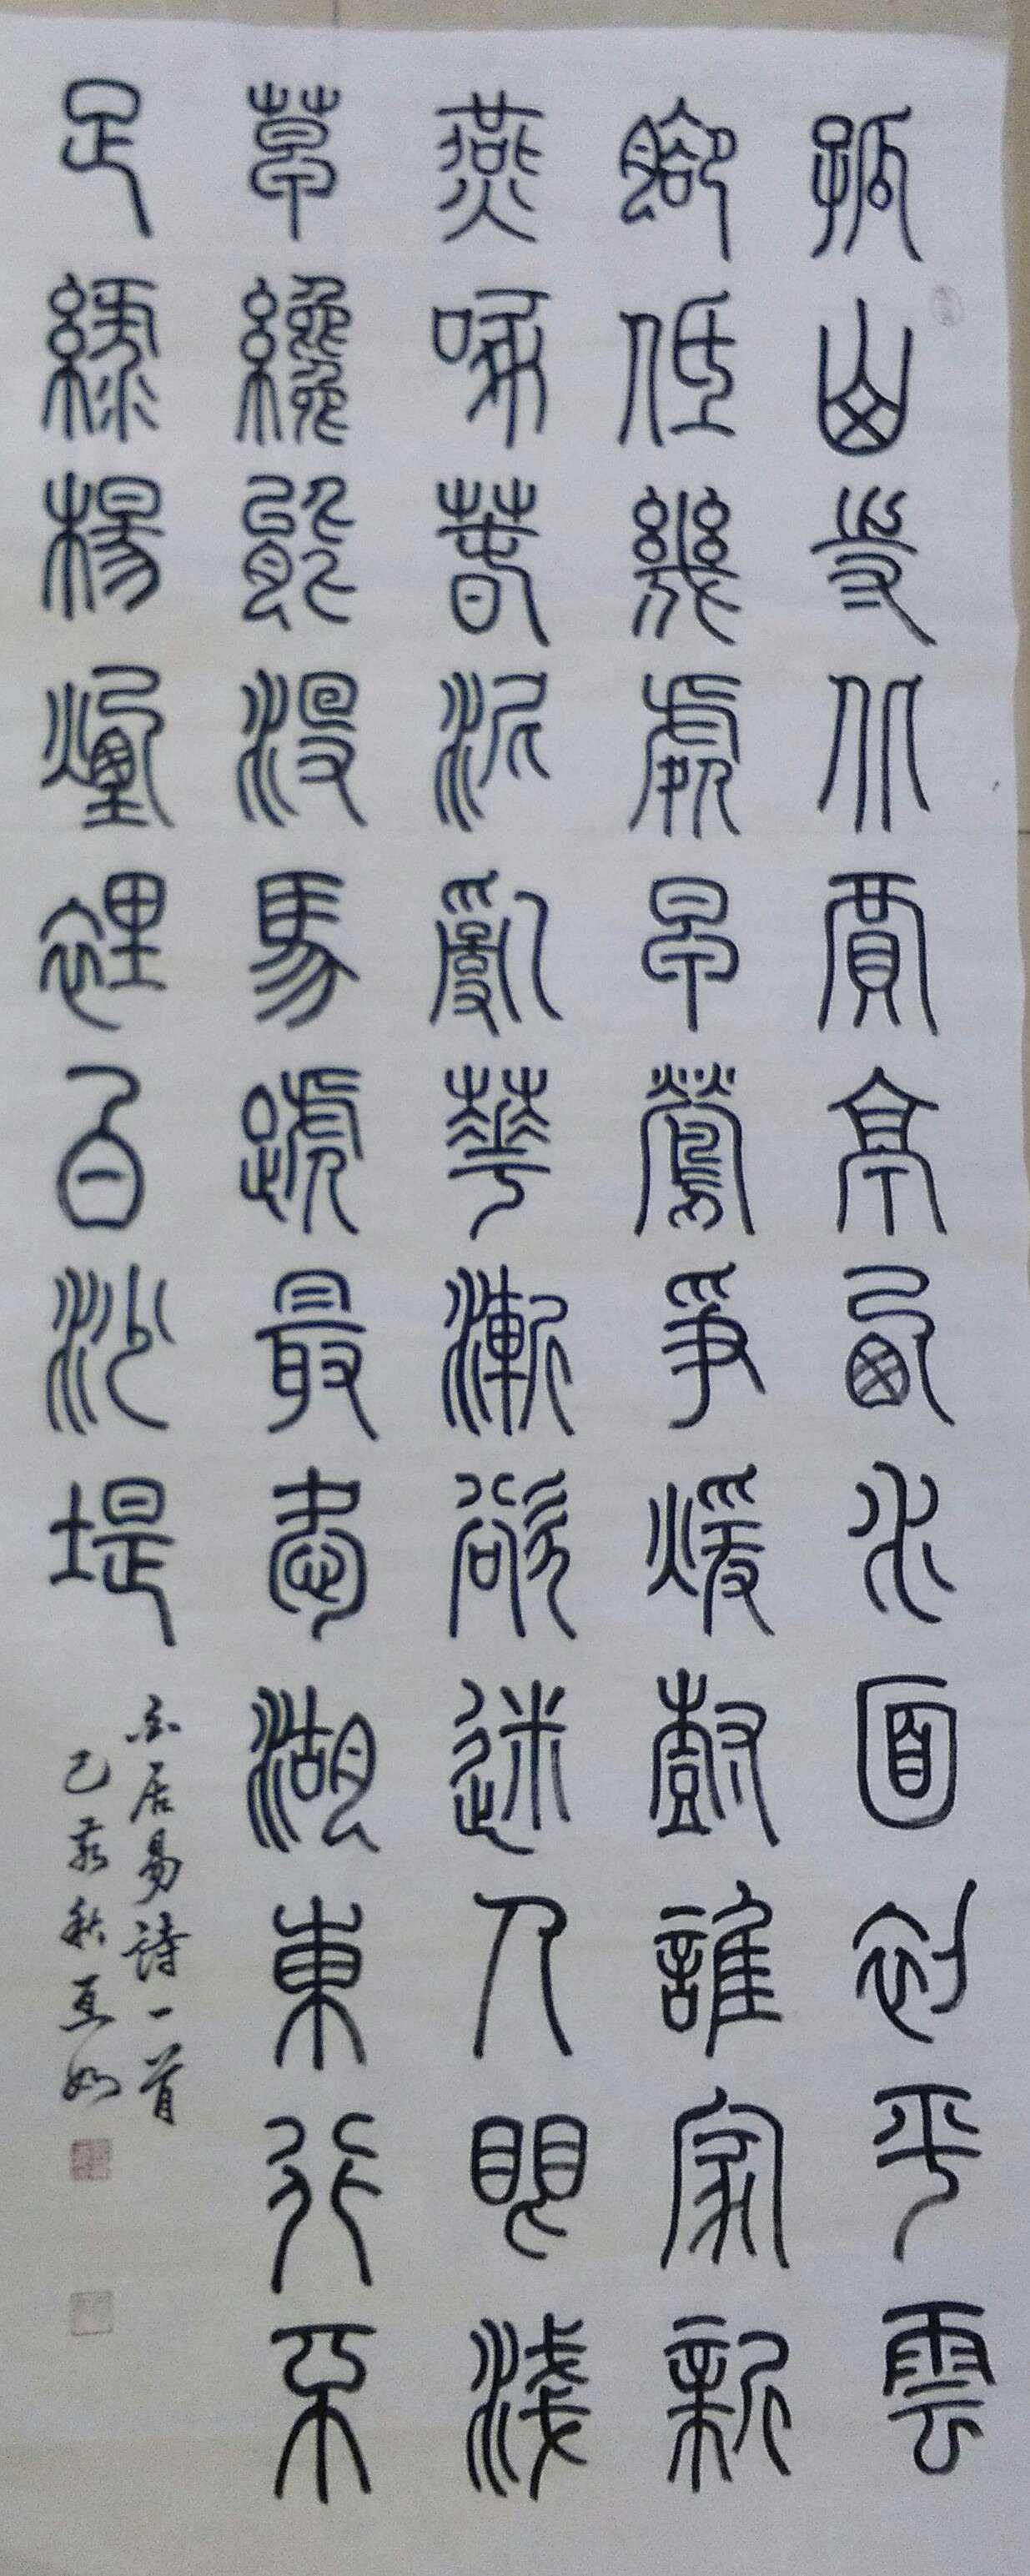 孤山寺北賈亭西水面初平雲
腳低幾處早鶯爭暖樹誰家新
燕啄春泥亂華漸欲迷人眼淺
草纔能沒馬蹄最愛湖東行不
足綠楊陰裏白沙堤
白居易詩一首
己亥秋